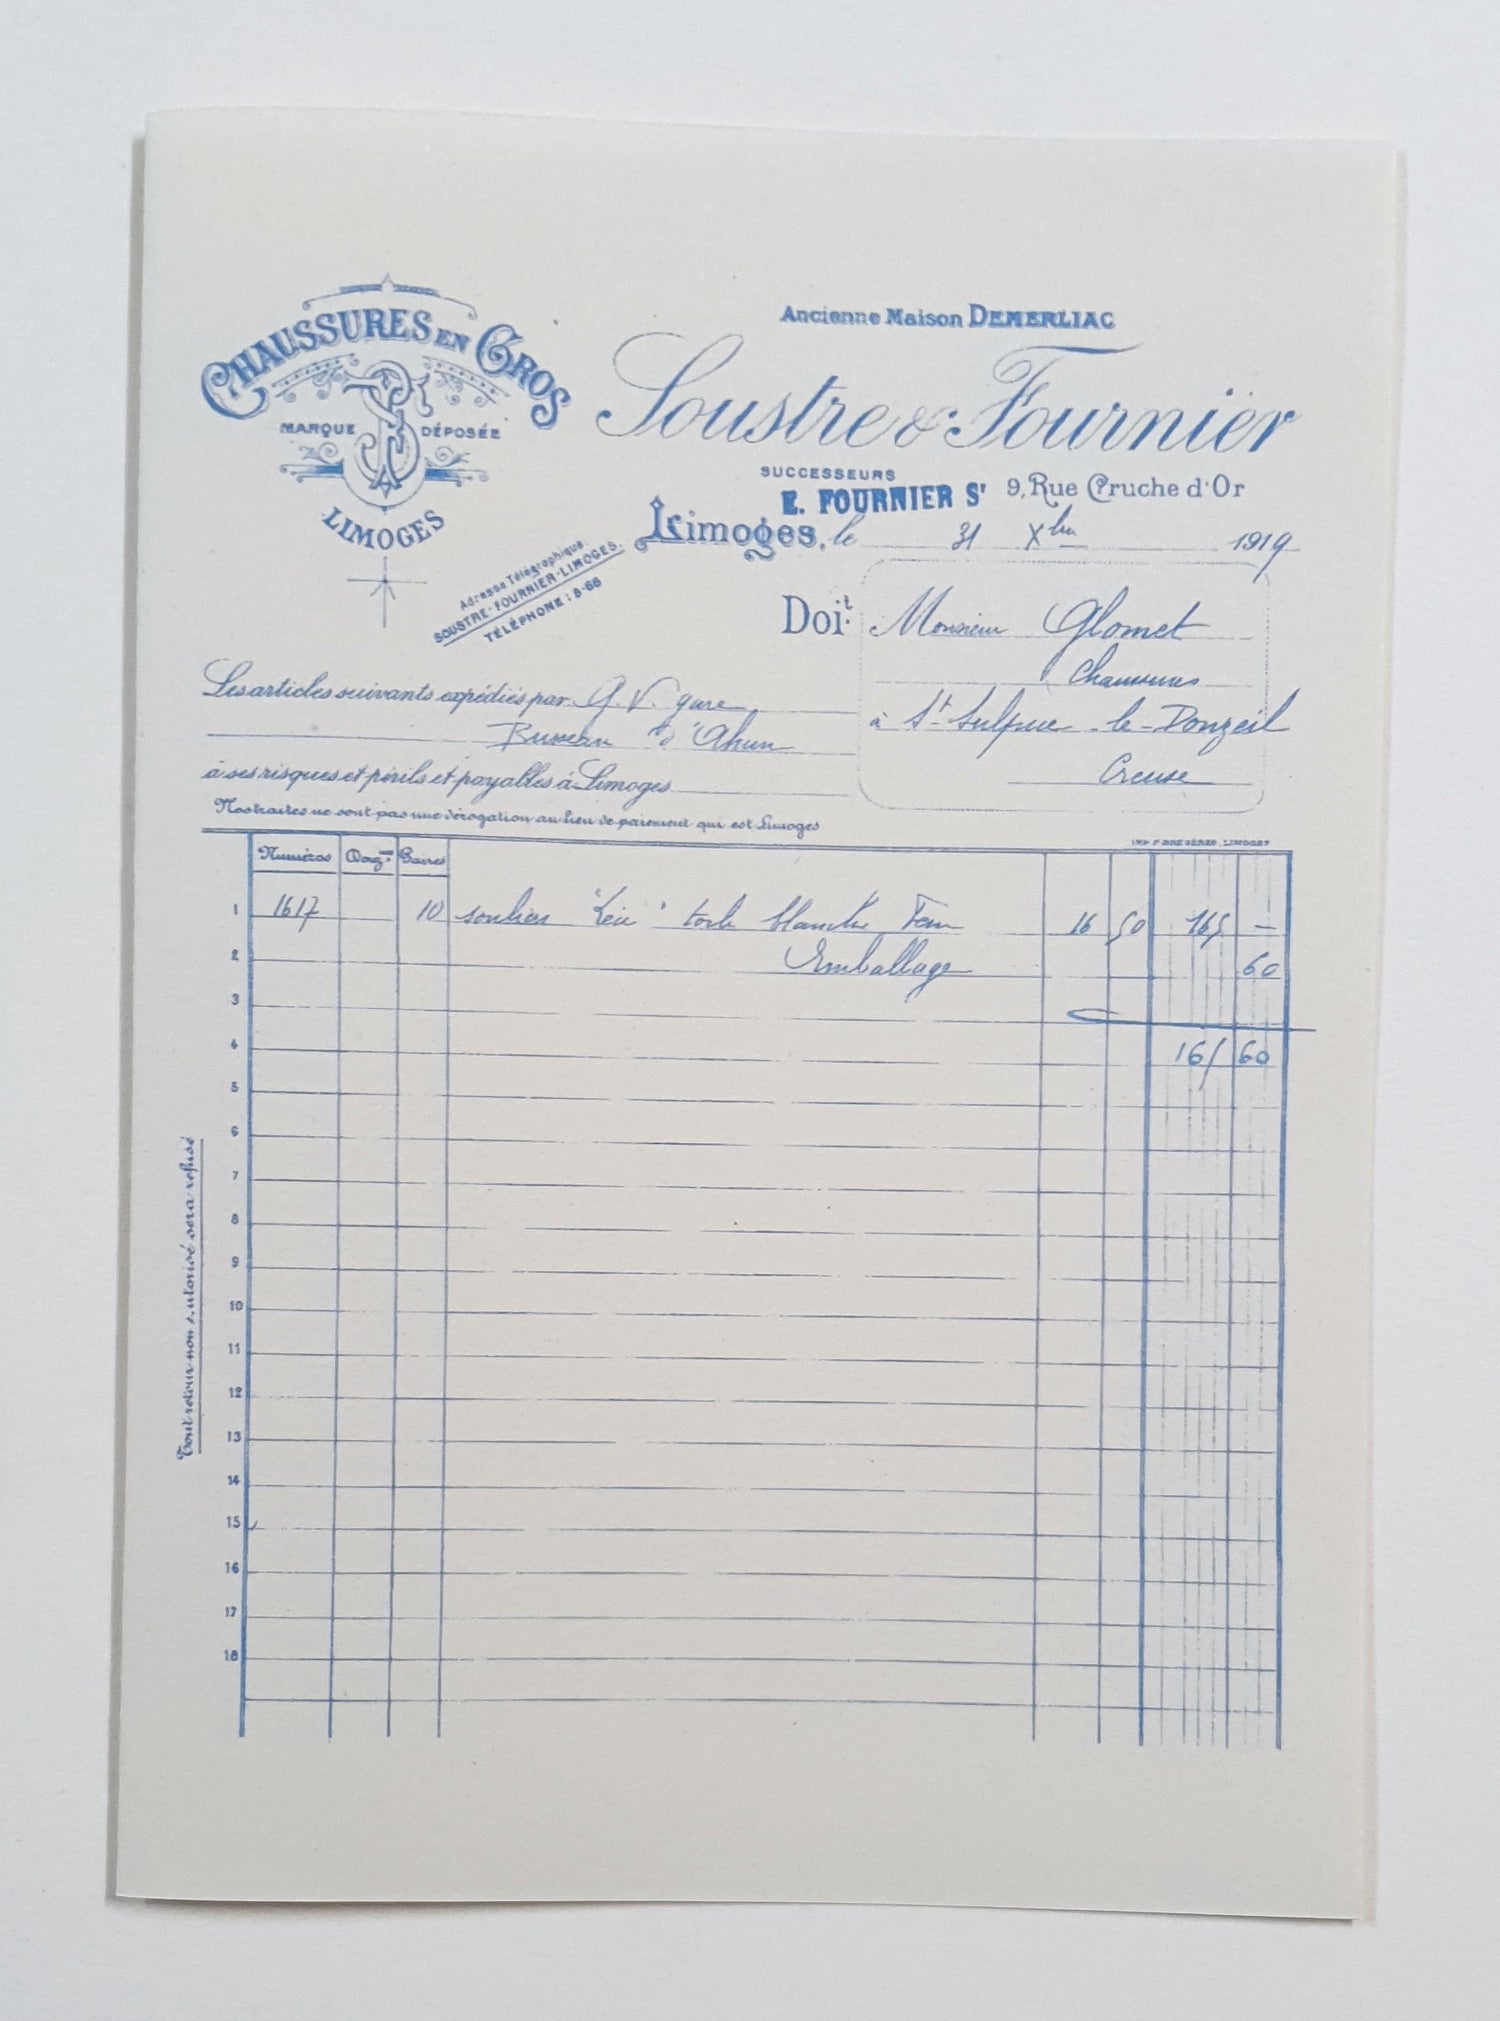 CHAUSSURES EN GROS
MARQUE DÉPOSÉE
LIMOGES
Ancienne Maison DEMERLIAC
Soustre & Fournier
SUCCESSEURS
E. FOURNIER Sr 9, Rue Cruche d'Or
Limoges, le 31 Xbre 1919
Adresse Télégraphique:
SOUSTRE-FOURNIER-LIMOGES.
TÉLÉPHONE: 8-66
Doit: Monsieur Glomet
Chaussures
à St Sulpice le Donzeil
Creuse
Les articles suivants expédiés par G.V. gare
Busseau d'Ahun
à ses risques et périls et payables à Limoges
Nos traites ne sont pas une dérogation au lieu de paiement qui est Limoges
Numéros Douz.nes Paires
1 1617 10 souliers toile blanche Fem 16 50 165 —
2 Emballage 60
3
4 165 60
5
6
7
8
9
10
11
12
13
14
15
16
17
18
Tout retour non autorisé sera refusé